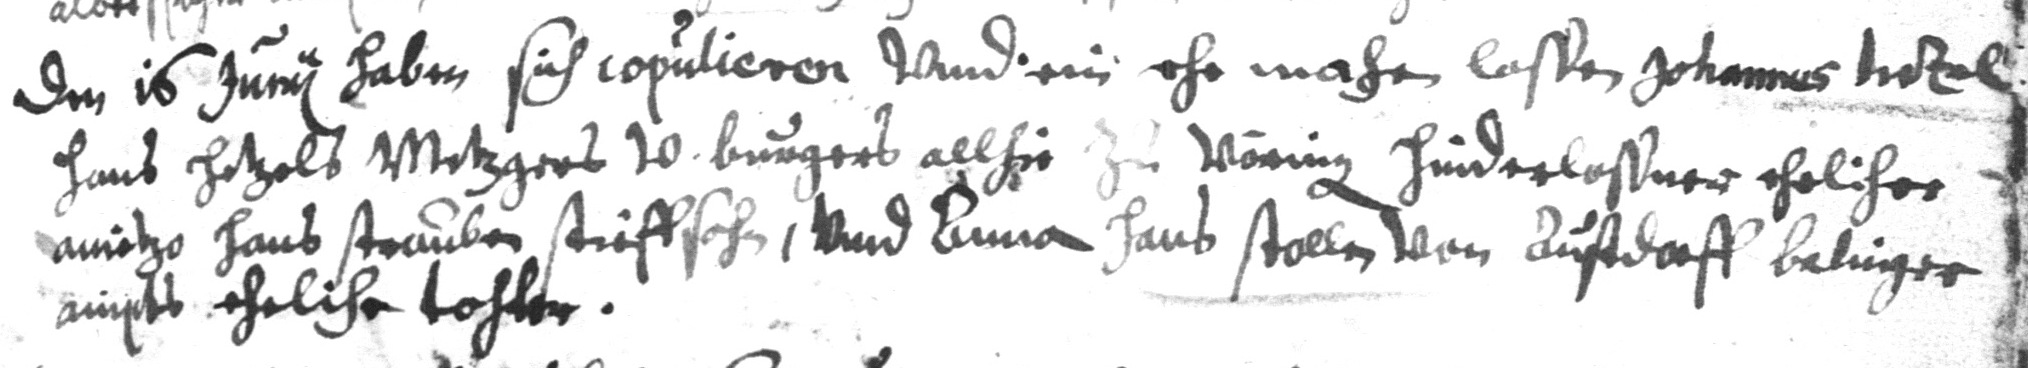 Den 16 Junij haben sich copulieren Vnnd ein ehe machen lassen Johannes hetzel
Hans hetzels Metzgers v. burgers allhie zu Vöring hinderlassner ehelicher
anietzo Hans strauben stieffsohn, Vnnd Anna Hans stollen Von Austdorff balinger
ampts eheliche tochter.